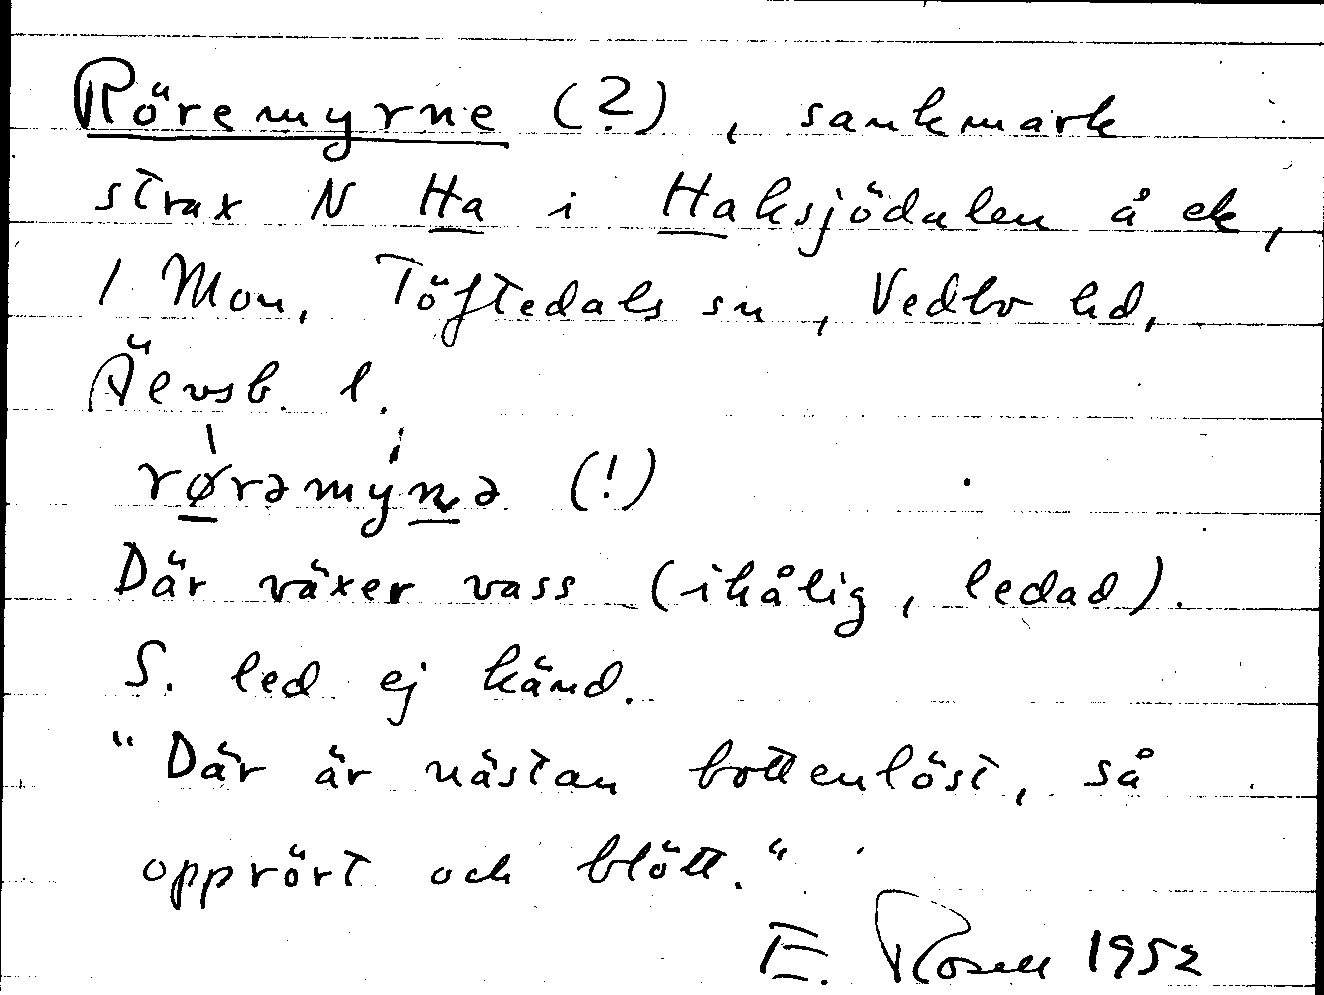 Röremyrne (?), sankmark
strax N Ha i Haksjödalen å ek,
1 Mon, Töftedals sn, Vedbo hd,
Älvsb. l.
rørəmyṇə (!)
Där växer vass (ihålig, ledad).
S. led ej känd.
"Där är nästan bottenlöst, så
opprört och blött."
E. Rosell 1952